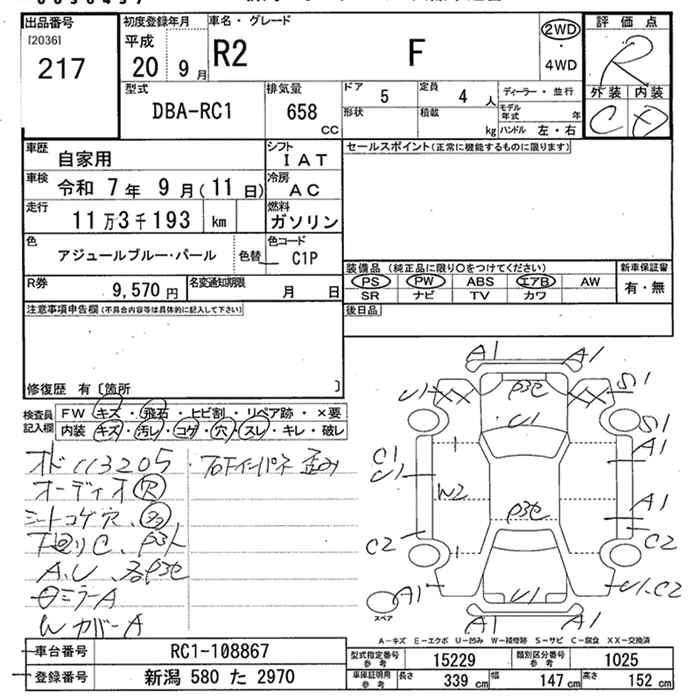 出品番号
[2036]
217
初度登録年月
平成
20 9月
車名・グレード
R2 F
2WD
・
4WD
評価点
R
外装 内装
C D
型式
DBA-RC1
排気量
658
cc
ドア
5
定員
4人
形状
積載
kg
ディーラー・並行
モデル年式 年
ハンドル 左・右
車歴
自家用
シフト
IAT
車検
令和 7年 9月(11日)
冷房
AC
走行
11万3千193 km
燃料
ガソリン
色
アジュールブルー・パール
色替
色コード
C1P
R券
9,570円
名変通知期限
月 日
セールスポイント(正常に機能するものに限ります)
装備品 (純正品に限り○をつけてください)
PS PW ABS エアB AW
SR ナビ TV カワ
新車保証書
有・無
後日品
注意事項申告欄(不具合内容等は具体的に記入して下さい)
修復歴 有〔箇所 〕
検査員
記入欄
FW キズ・飛石・ヒビ割・リペア跡・×要
内装 キズ・汚レ・コゲ・穴・スレ・キレ・破レ
オド113205
フロアインパネ歪み
オーディオ穴
シートコゲ穴、多
下廻りC、P3ト
A,U、各P3セ
ロミラーA
WカバーA
A1 A1
U1 P3セ S1
U1 S1
C1
U1
A1
W2
A1
P3セ
C2 C2
A1 U1 U1-C2
A1 A1
スペア
A－キズ E－エクボ U－凹み W－補修跡 S－サビ C－腐食 XX－交換済
車台番号
RC1-108867
登録番号
新潟 580 た 2970
型式指定番号
参考
15229
類別区分番号
参考
1025
車庫証明用
参考
長さ 339 cm 幅 147 cm 高さ 152 cm